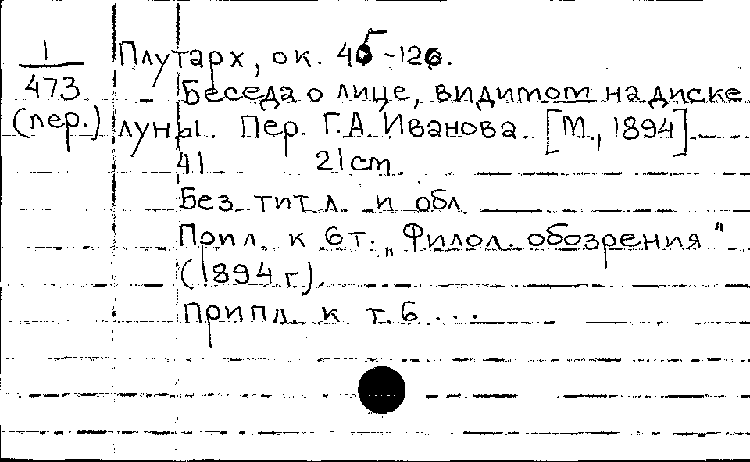 1
473
(пер.)
Плутарх, ок. 45-126.
Беседа о лице, видимом на диске
луны. Пер. Г.А. Иванова. [М., 1894]
41 21 cm.
Без тит л. и обл
Прил. к 6 т. „Филол. обозрения"
(1894 г.).
Припл. к т. 6 ...